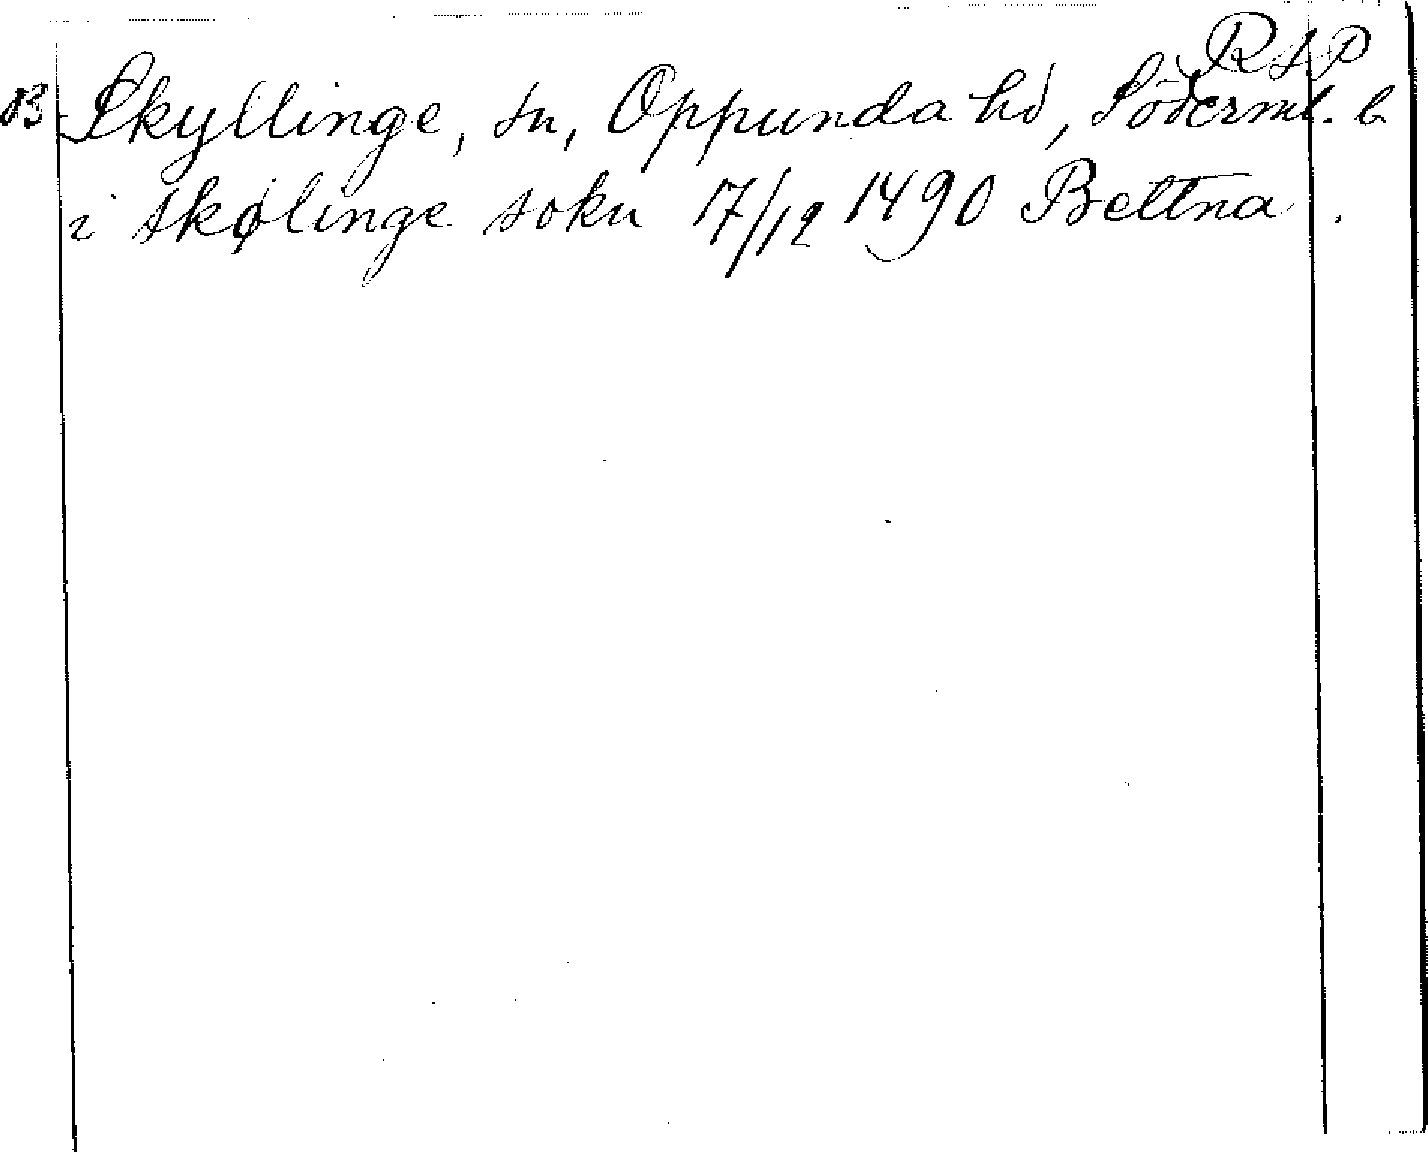 RSP
83 Skyllinge, sn, Oppunda hd, Söderml. l.
i skølinge sokn 17/12 1490 Bettna.